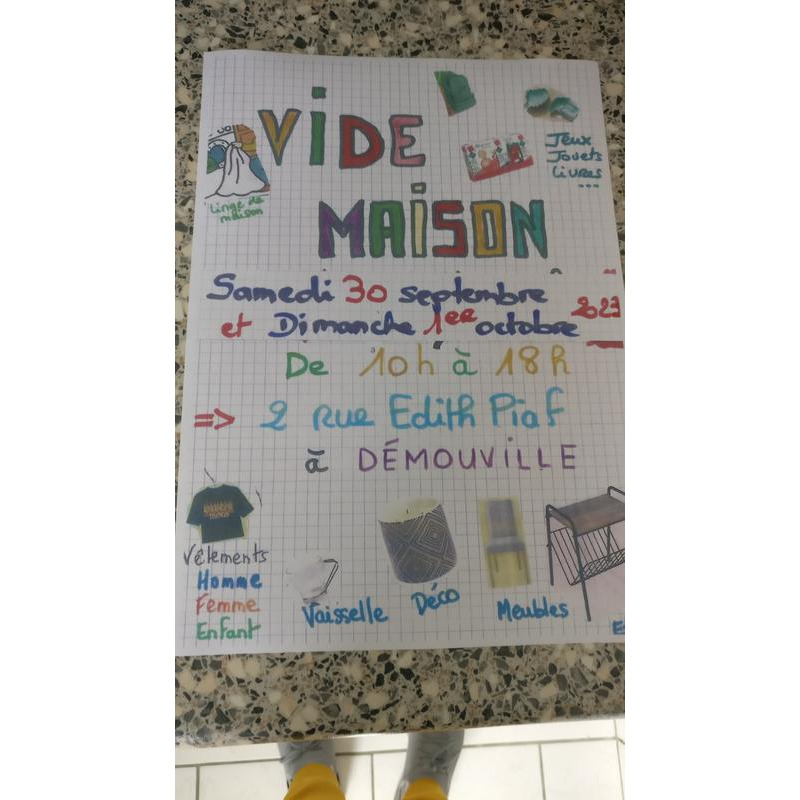 VIDE
MAISON
Jeux
Jouets
Livres
...
Linge de
maison
Samedi 30 septembre 2023
et Dimanche 1er octobre
De 10h à 18h
=> 2 rue Edith Piaf
à DÉMOUVILLE
Vêtements
Homme
Femme
Enfant
Vaisselle
Déco
Meubles